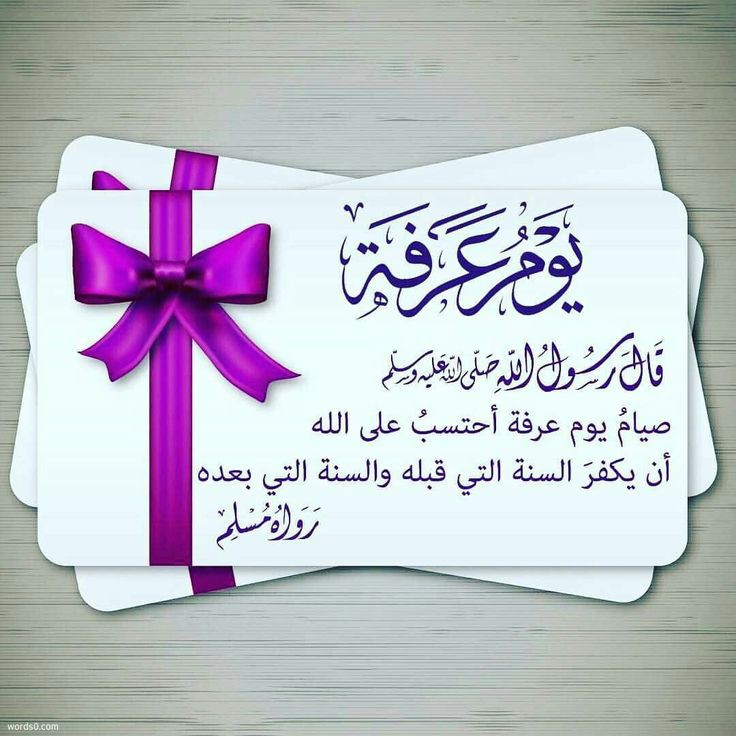 يَوْمُ عَرَفَة
قَالَ رَسُولُ اللّٰهِ صَلَّى اللّٰهُ عَلَيْهِ وَسَلَّم
صيامُ يوم عرفة أحتسبُ على الله
أن يكفرَ السنة التي قبله والسنة التي بعده
رَوَاهُ مُسْلِم
words0.com